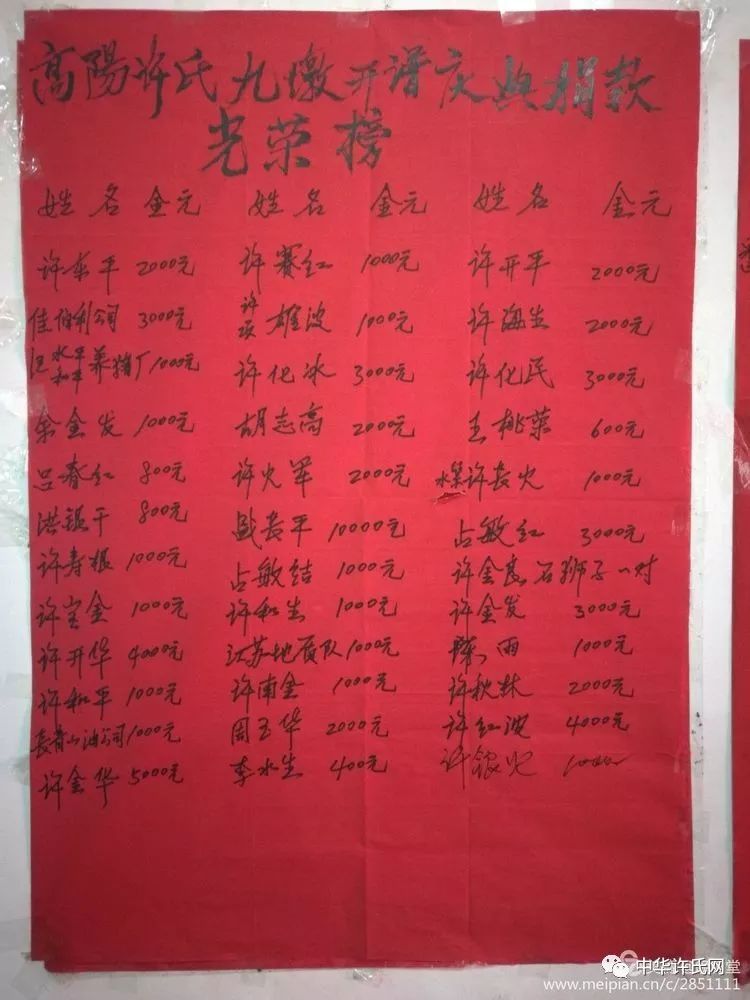 高陽许氏九墩开谱庆典捐款
光荣榜
姓名 金元 姓名 金元 姓名 金元
许东平 2000元 许赛红 1000元 许开平 2000元
佳伯利公司 3000元 许 雄波 1000元 许海生 2000元
水平 和平 养猪厂 1000元 许化冰 3000元 许化民 3000元
余金发 1000元 胡志高 2000元 王桃荣 600元
吕春红 800元 许火军 2000元 许长火 1000元
洪镇干 800元 盛长平 10000元 占敏红 3000元
许寿根 1000元 占敏结 1000元 许金良 石狮子一对
许宝金 1000元 许和生 1000元 许金发 3000元
许开华 4000元 江苏地质队 1000元 雨 1000元
许和平 1000元 许南金 1000元 许秋林 2000元
长青山油公司 1000元 周玉华 2000元 许红波 4000元
许金华 5000元 李水生 400元 许银火 1000
中华许氏网堂
www.meipian.cn/c/2851111